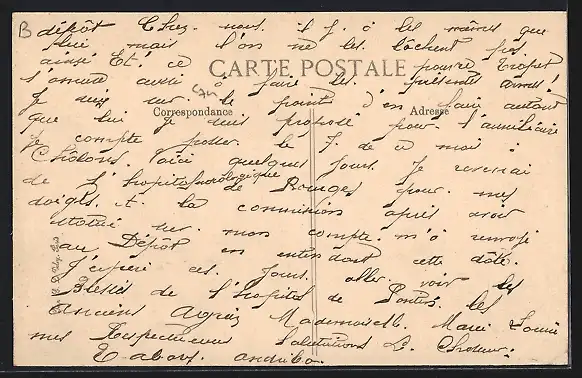 dépôt Chez nous il y a les mêmes que
lui mais l'on ne les lâchent pas.
ainsi Et ce pauvre
CARTE POSTALE
s'amuse aussi à faire les présentes armes!
Je suis sur le point d'en faire autant
Correspondance
Adresse
que lui je suis proposé pour l'auxiliaire
je compte passer le 7 de ce mois à
Chalons. Voici quelques jours. Je revenai
de l'hopital neurologique de Bourges pour mes
doigts. et la commission après avoir
statué sur mon compte m'a renvoyé
au Dépôt en attendant cette date.
J'espère ces jours aller voir les
Blessés de l'hopital de les
Anciens Mademoiselle Marie Louise
mes Respectueuses Salutations